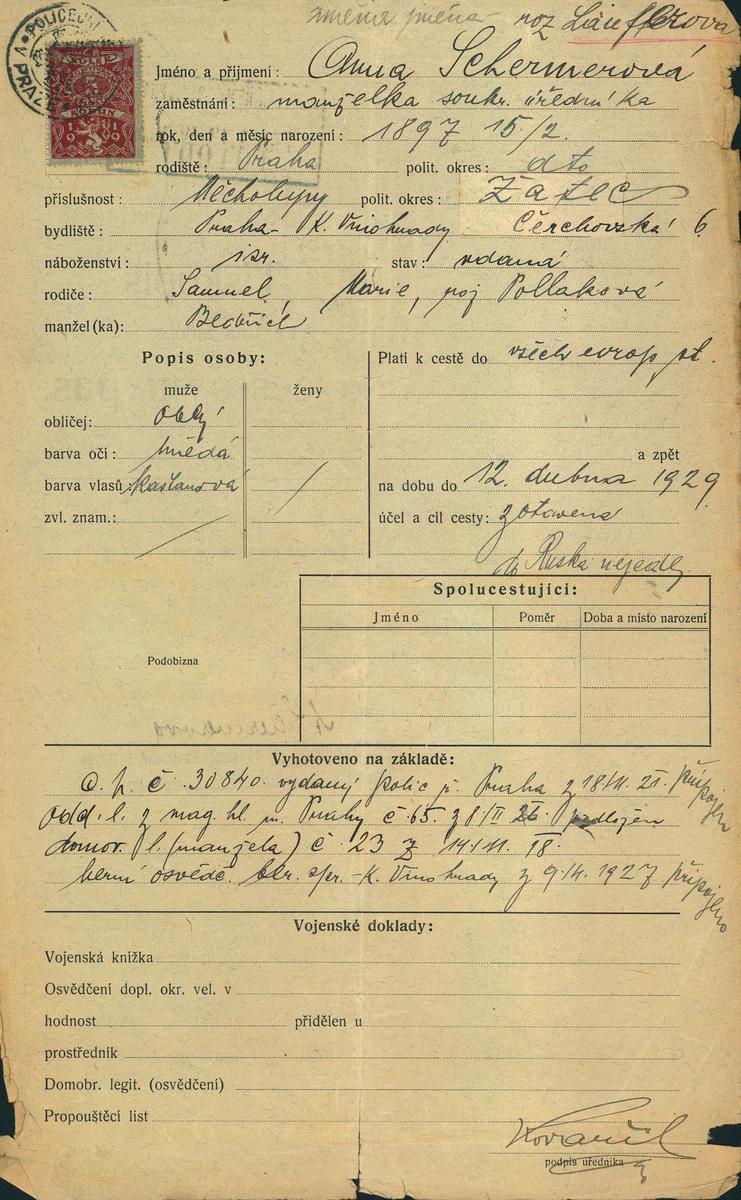 změna jména roz Läufferova
POLICEJNÍ
V PRAZE
KOLEK
1919
Jméno a příjmení: Anna Schermerová
zaměstnání: manželka soukr. úředníka
rok, den a měsíc narození: 1897 15/2.
rodiště: Praha polit. okres: dto
příslušnost: Měcholupy polit. okres: Žatec
bydliště: Praha - K. Vinohrady Čerchovská 6
náboženství: isr. stav: vdaná
rodiče: Samuel, Marie, roz Pollaková
manžel (ka): Bedřich
Popis osoby:
muže ženy
obličej: oblý
barva očí: hnědá
barva vlasů: kaštanová
zvl. znam.:
Platí k cestě do všech evrop. st.
a zpět
na dobu do 12. dubna 1929
účel a cíl cesty: zotavená
do Ruska nejede
Spolucestující:
Jméno Poměr Doba a místo narození
Podobizna
Vyhotoveno na základě:
C. p. č. 30840. vydaný polic. ř. Praha z 18/11. 21. připojen
Odd. l. z mag. hl. m. Prahy č. 65. z 8/II 26. předložen
domov. l. (manžela) č. 23 z 14/11. 18.
berní osvědč. ber. spr. - K. Vinohrady z 9./4. 1927 připojeno
Vojenské doklady:
Vojenská knížka
Osvědčení dopl. okr. vel. v
hodnost přidělen u
prostředník
Domobr. legit. (osvědčení)
Propouštěcí list
podpis úředníka